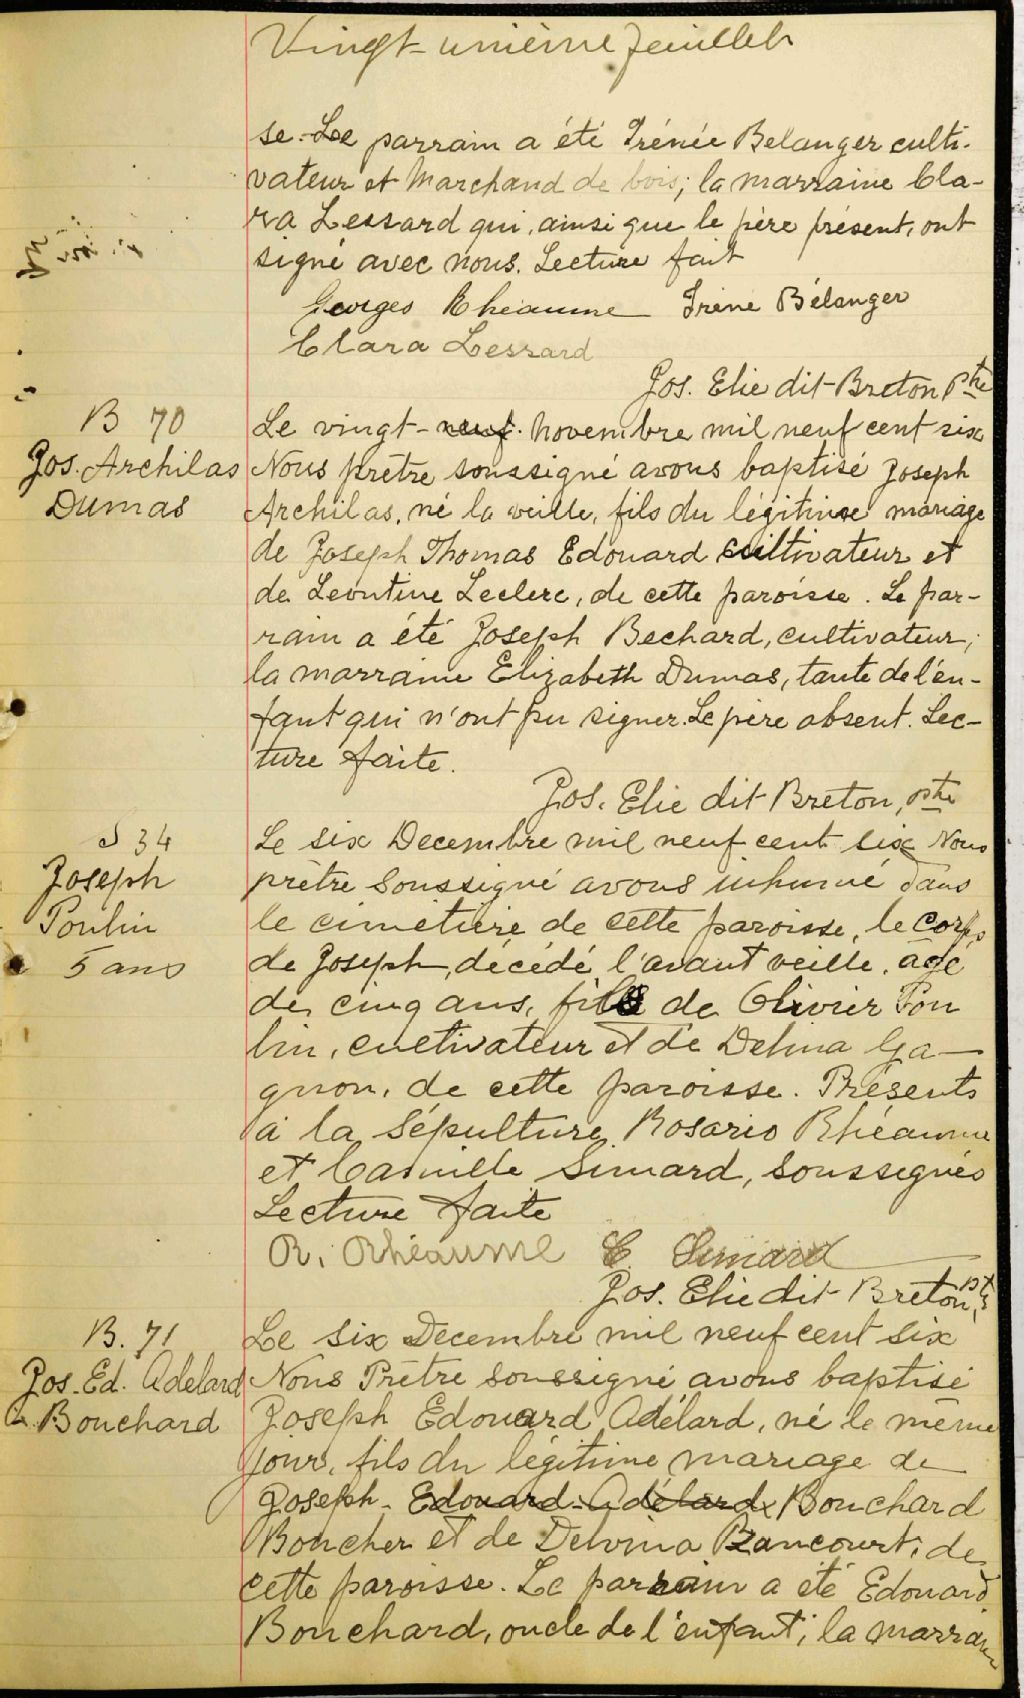 Vingt-unième feuillet
se. Le parrain a été Irénée Belanger culti-
vateur et Marchand de bois; la marraine Cla-
ra Lessard qui, ainsi que le père présent, ont
signé avec nous. Lecture fait
Georges Rheaume Irène Bélanger
Clara Lessard
Jos. Elie dit Breton Ptre
B 70
Jos. Archilas
Dumas
Le vingt-neuf novembre mil neuf cent six
Nous prêtre soussigné avons baptisé Joseph
Archilas, né la veille, fils du légitime mariage
de Joseph Thomas Edouard cultivateur et
de Leontine Leclerc, de cette paroisse. Le par-
rain a été Joseph Bechard, cultivateur;
la marraine Elizabeth Dumas, tante de l'en-
fant qui n'ont pu signer. Le père absent. Lec-
ture faite.
Jos. Elie dit Breton, ptre
S 34
Joseph
Poulin
5 ans
Le six Decembre mil neuf cent six Nous
prêtre soussigné avons inhumé dans
le cimetière de cette paroisse, le corps
de Joseph, décédé l'avant veille, agé
de cinq ans, fils de Olivier Pou
lin, cultivateur et de Delina Ga-
gnon, de cette paroisse. Présents
à la sépulture Rosario Rhéaume
et Camille Simard, soussignés
Lecture faite
R. Rhéaume C. Simard
Jos. Elie dit Breton, Ptre
B. 71
Jos. Ed. Adelard
Bouchard
Le six Decembre mil neuf cent six
Nous Prêtre soussigné avons baptisé
Joseph Edouard Adélard, né le même
jour, fils du légitime mariage de
Joseph - Edouard-Adélard x Bouchard
Boucher et de Delvina Rancourt, de
cette paroisse. Le parrain a été Edouard
Bouchard, oncle de l'enfant; la marraine